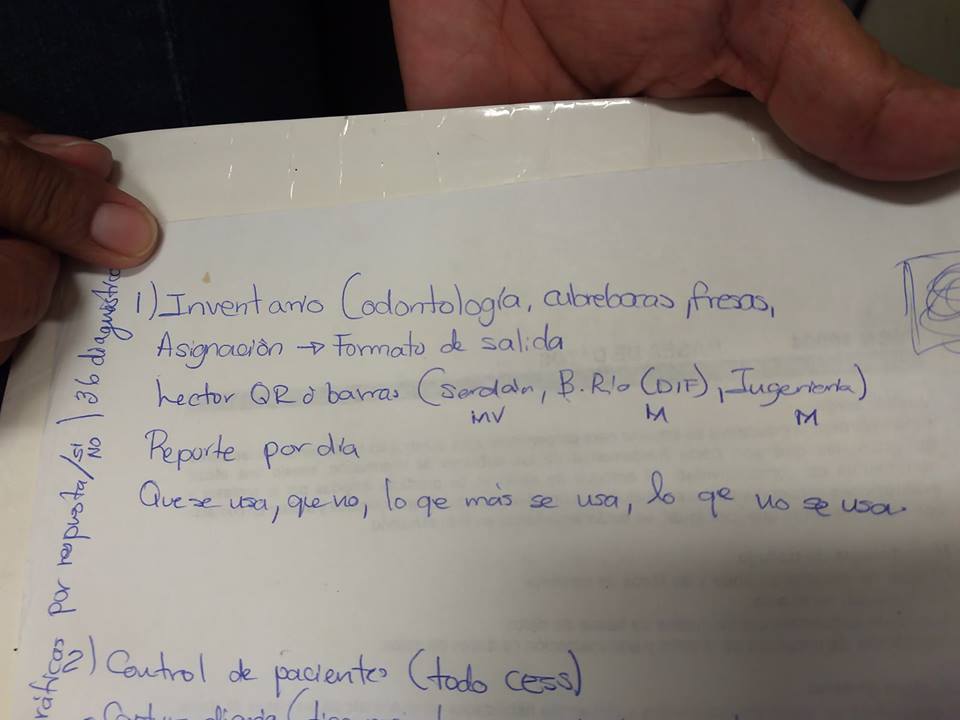 1) Inventario (odontología, cubrebocas, fresas,
Asignación → Formato de salida
Lector QR ó barras (Serdán, B. Río (DIF), Ingeniería)
MV M M
Reporte por día
Que se usa, que no, lo qe más se usa, lo qe no se usa.
2) Control de pacientes (todo cess)
ráficas por respuesta/si no | 36 diagnóstico